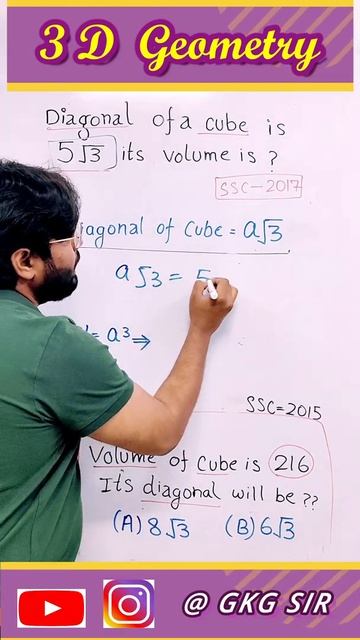 3D Geometry
Diagonal of a cube is
5√3 its volume is ?
SSC-2017
iagonal of Cube = a√3
a√3 = 5
= a³ ⇒
SSC=2015
Volume of Cube is 216
Its diagonal will be ??
(A) 8√3 (B) 6√3
@ GKG SIR